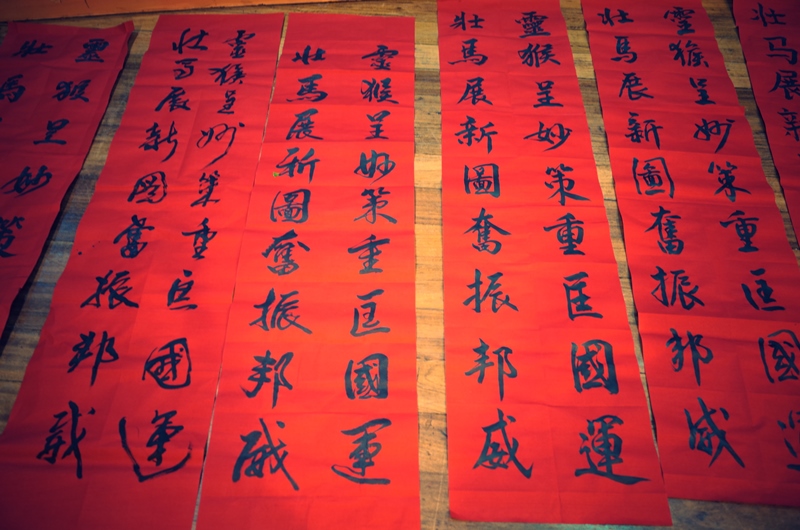 壮马展新
靈猴呈妙策重匡國運
壯馬展新圖奮振邦威
靈猴呈妙策重匡國運
壯馬展新圖奮振邦威
靈猴呈妙策重匡國運
壯馬展新圖奮振邦威
靈猴呈妙策重匡國運
壯馬展新圖奮振邦威
靈猴呈妙策
壯馬